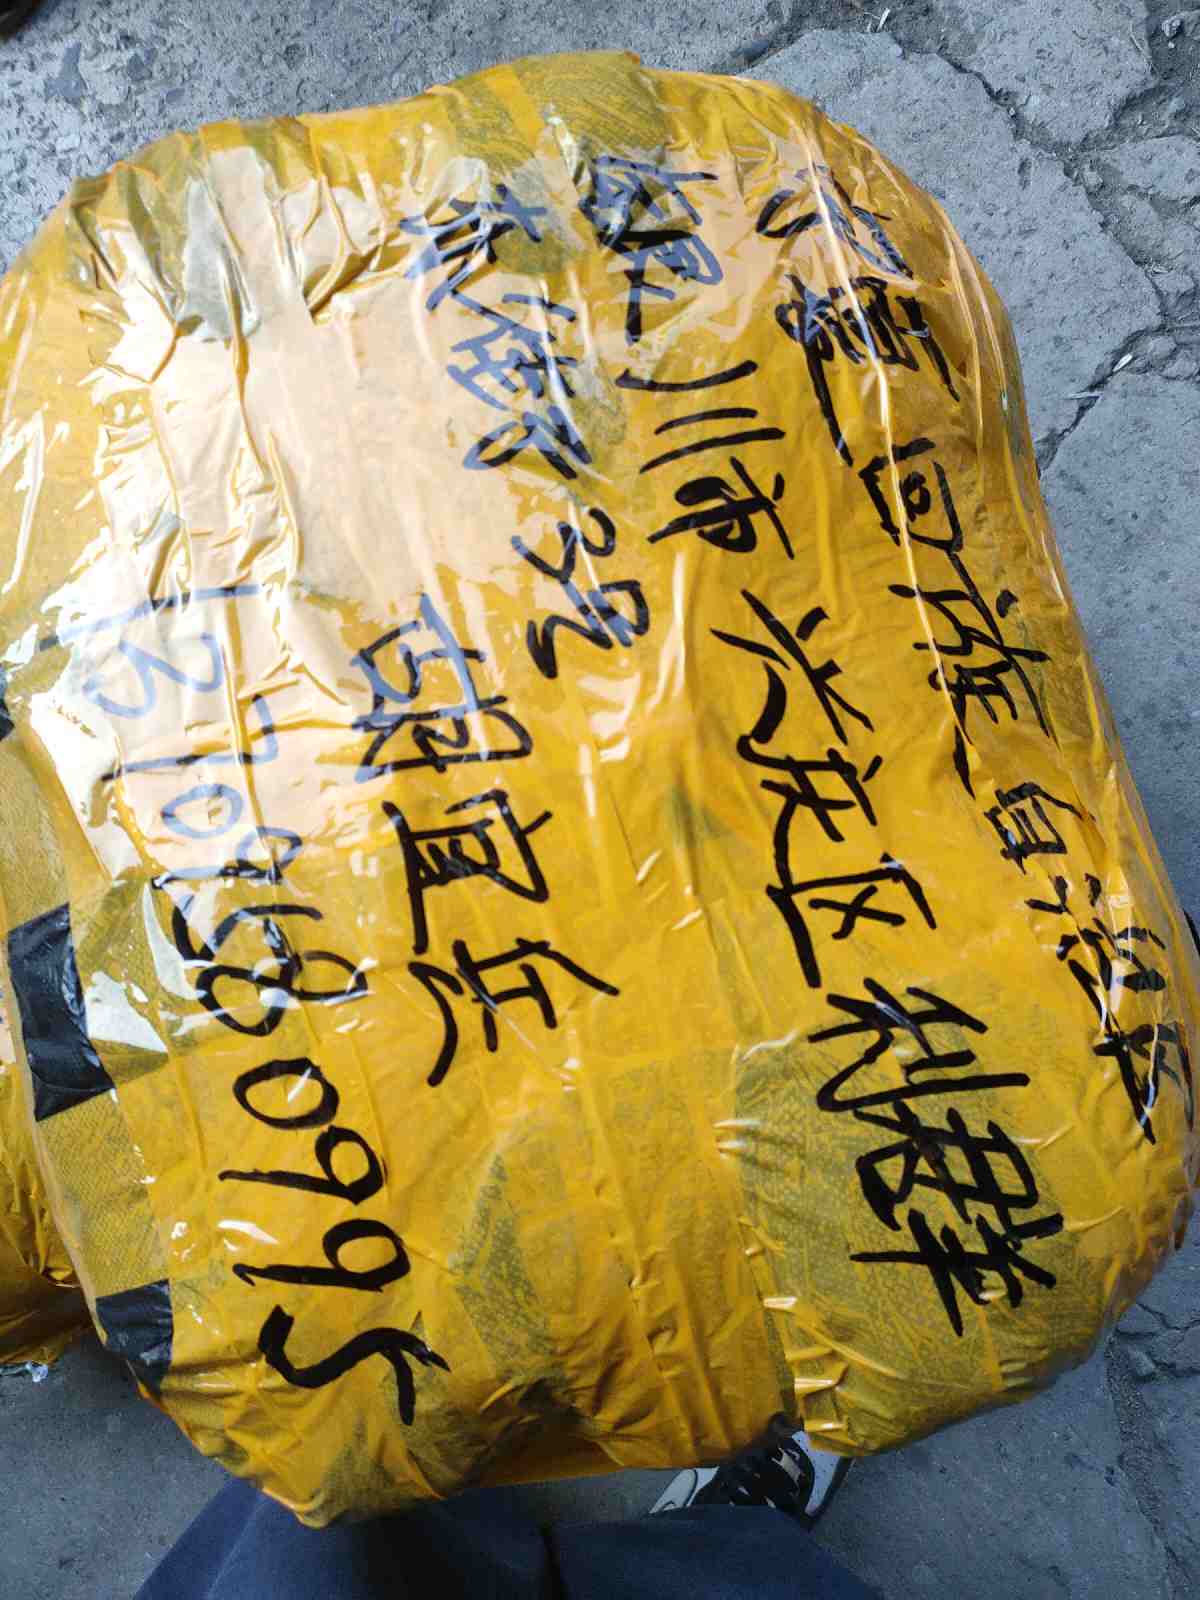 宁夏回族自治区
银川市兴庆区利群
东街3号
胡宜兵
13709580995